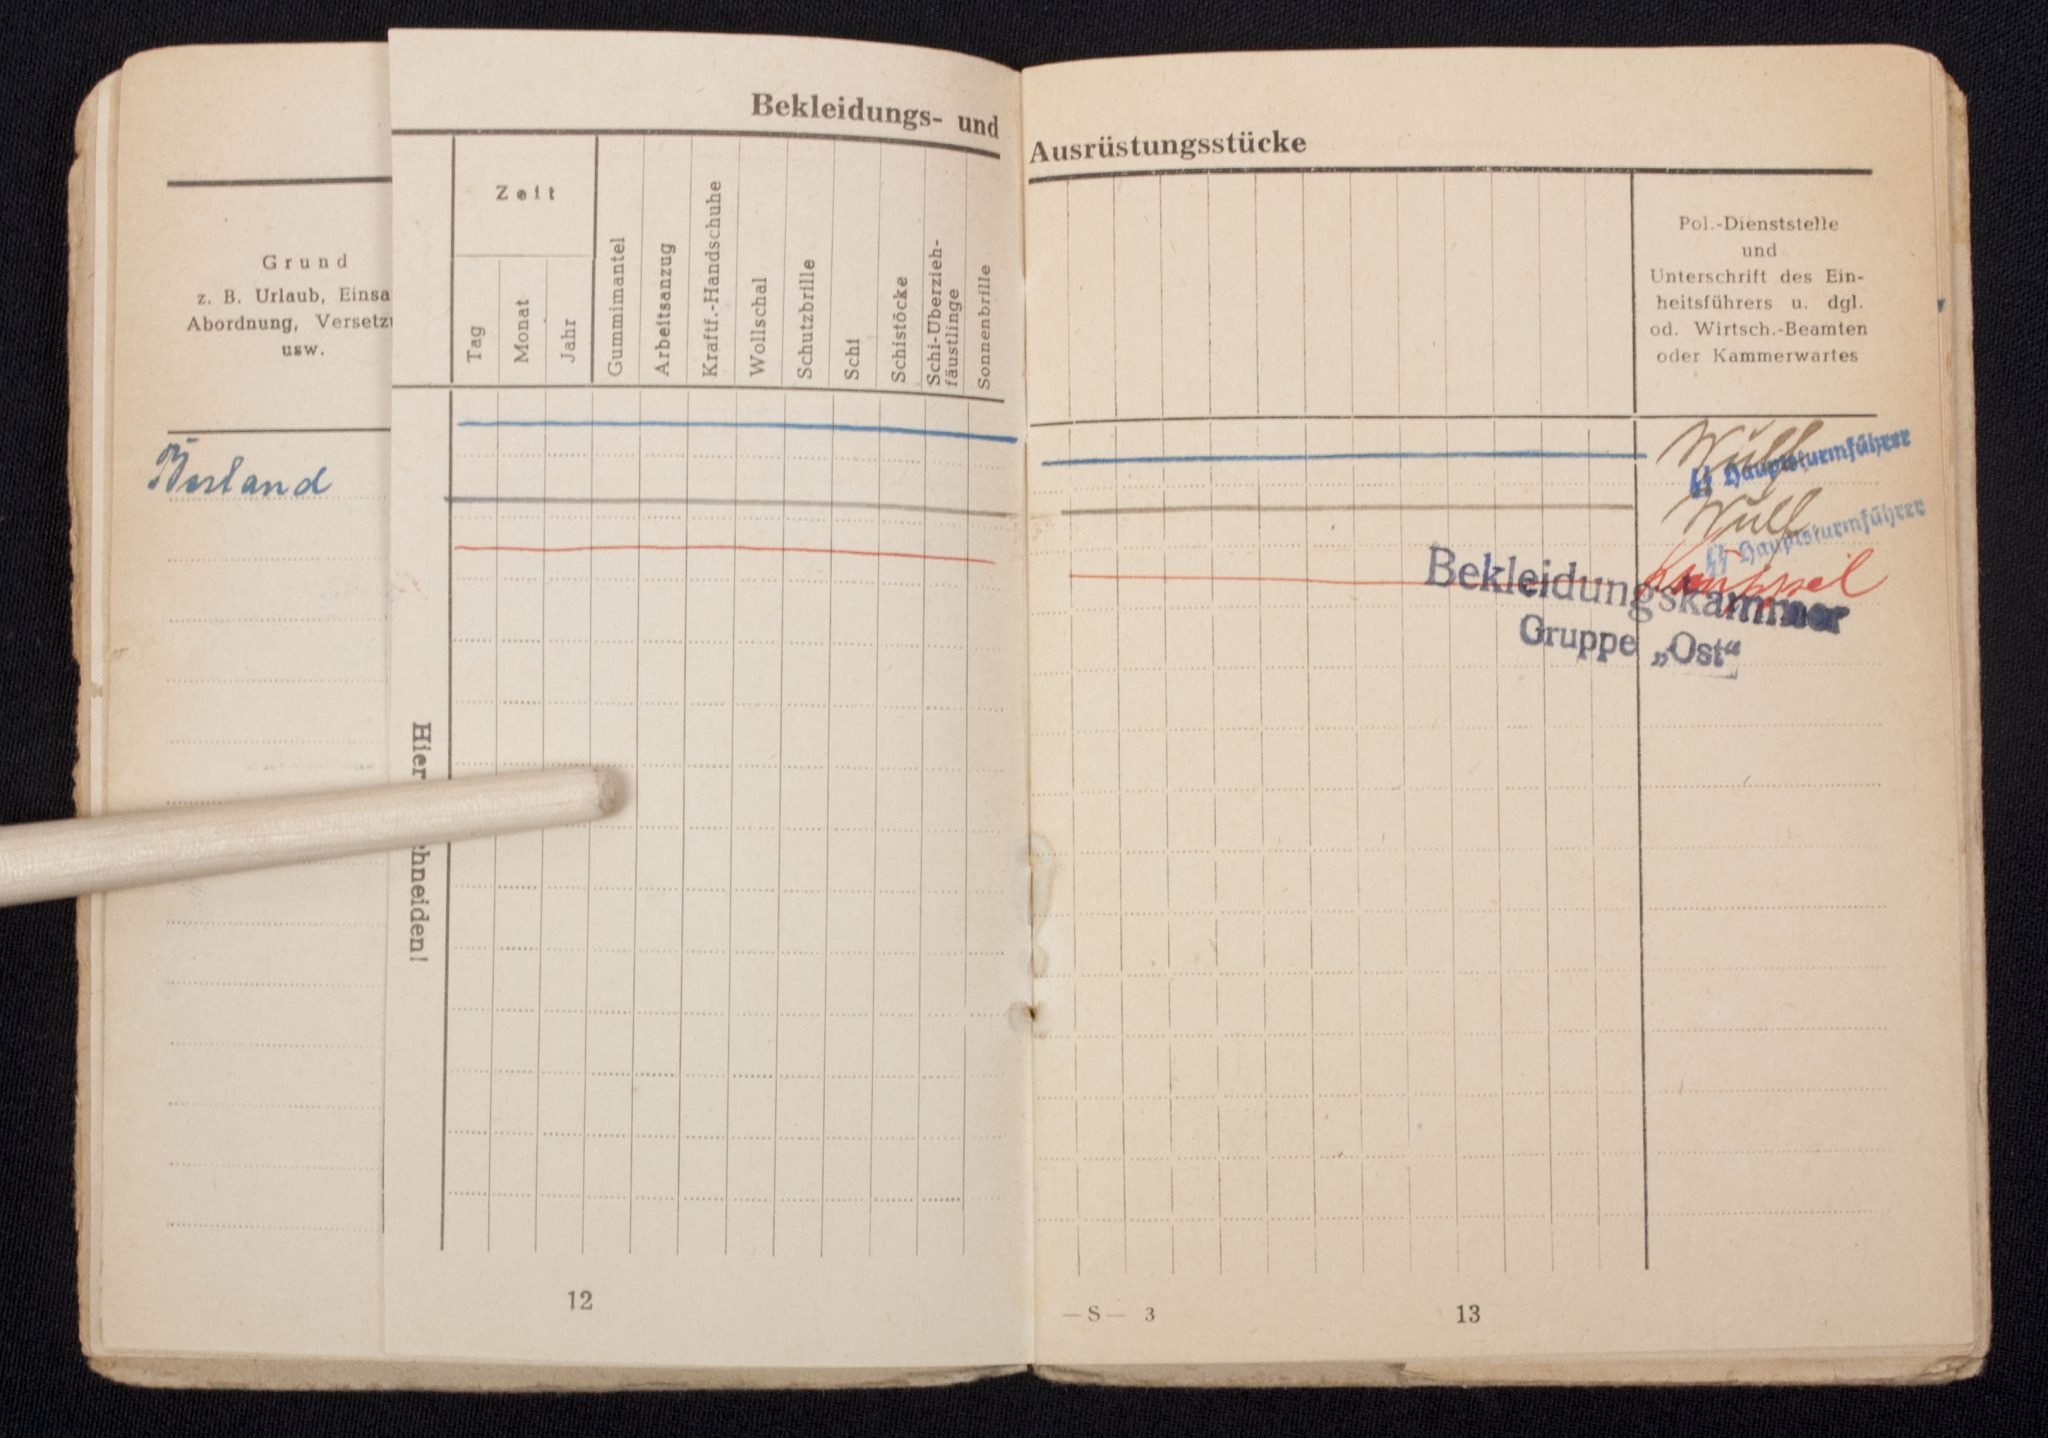 Bekleidungs- und
Ausrüstungsstücke
Grund
z. B. Urlaub, Einsa
Abordnung, Versetzu
usw.
Zeit
Tag
Monat
Jahr
Gummimantel
Arbeitsanzug
Kraftf.-Handschuhe
Wollschal
Schutzbrille
Schi
Schistöcke
Schi-Überzieh-
fäustlinge
Sonnenbrille
Pol.-Dienststelle
und
Unterschrift des Ein-
heitsführers u. dgl.
od. Wirtsch.-Beamten
oder Kammerwartes
Hier
chneiden!
SS Hauptsturmführer
SS Hauptsturmführer
Bekleidungskammer
Gruppe „Ost“
12
— S — 3
13